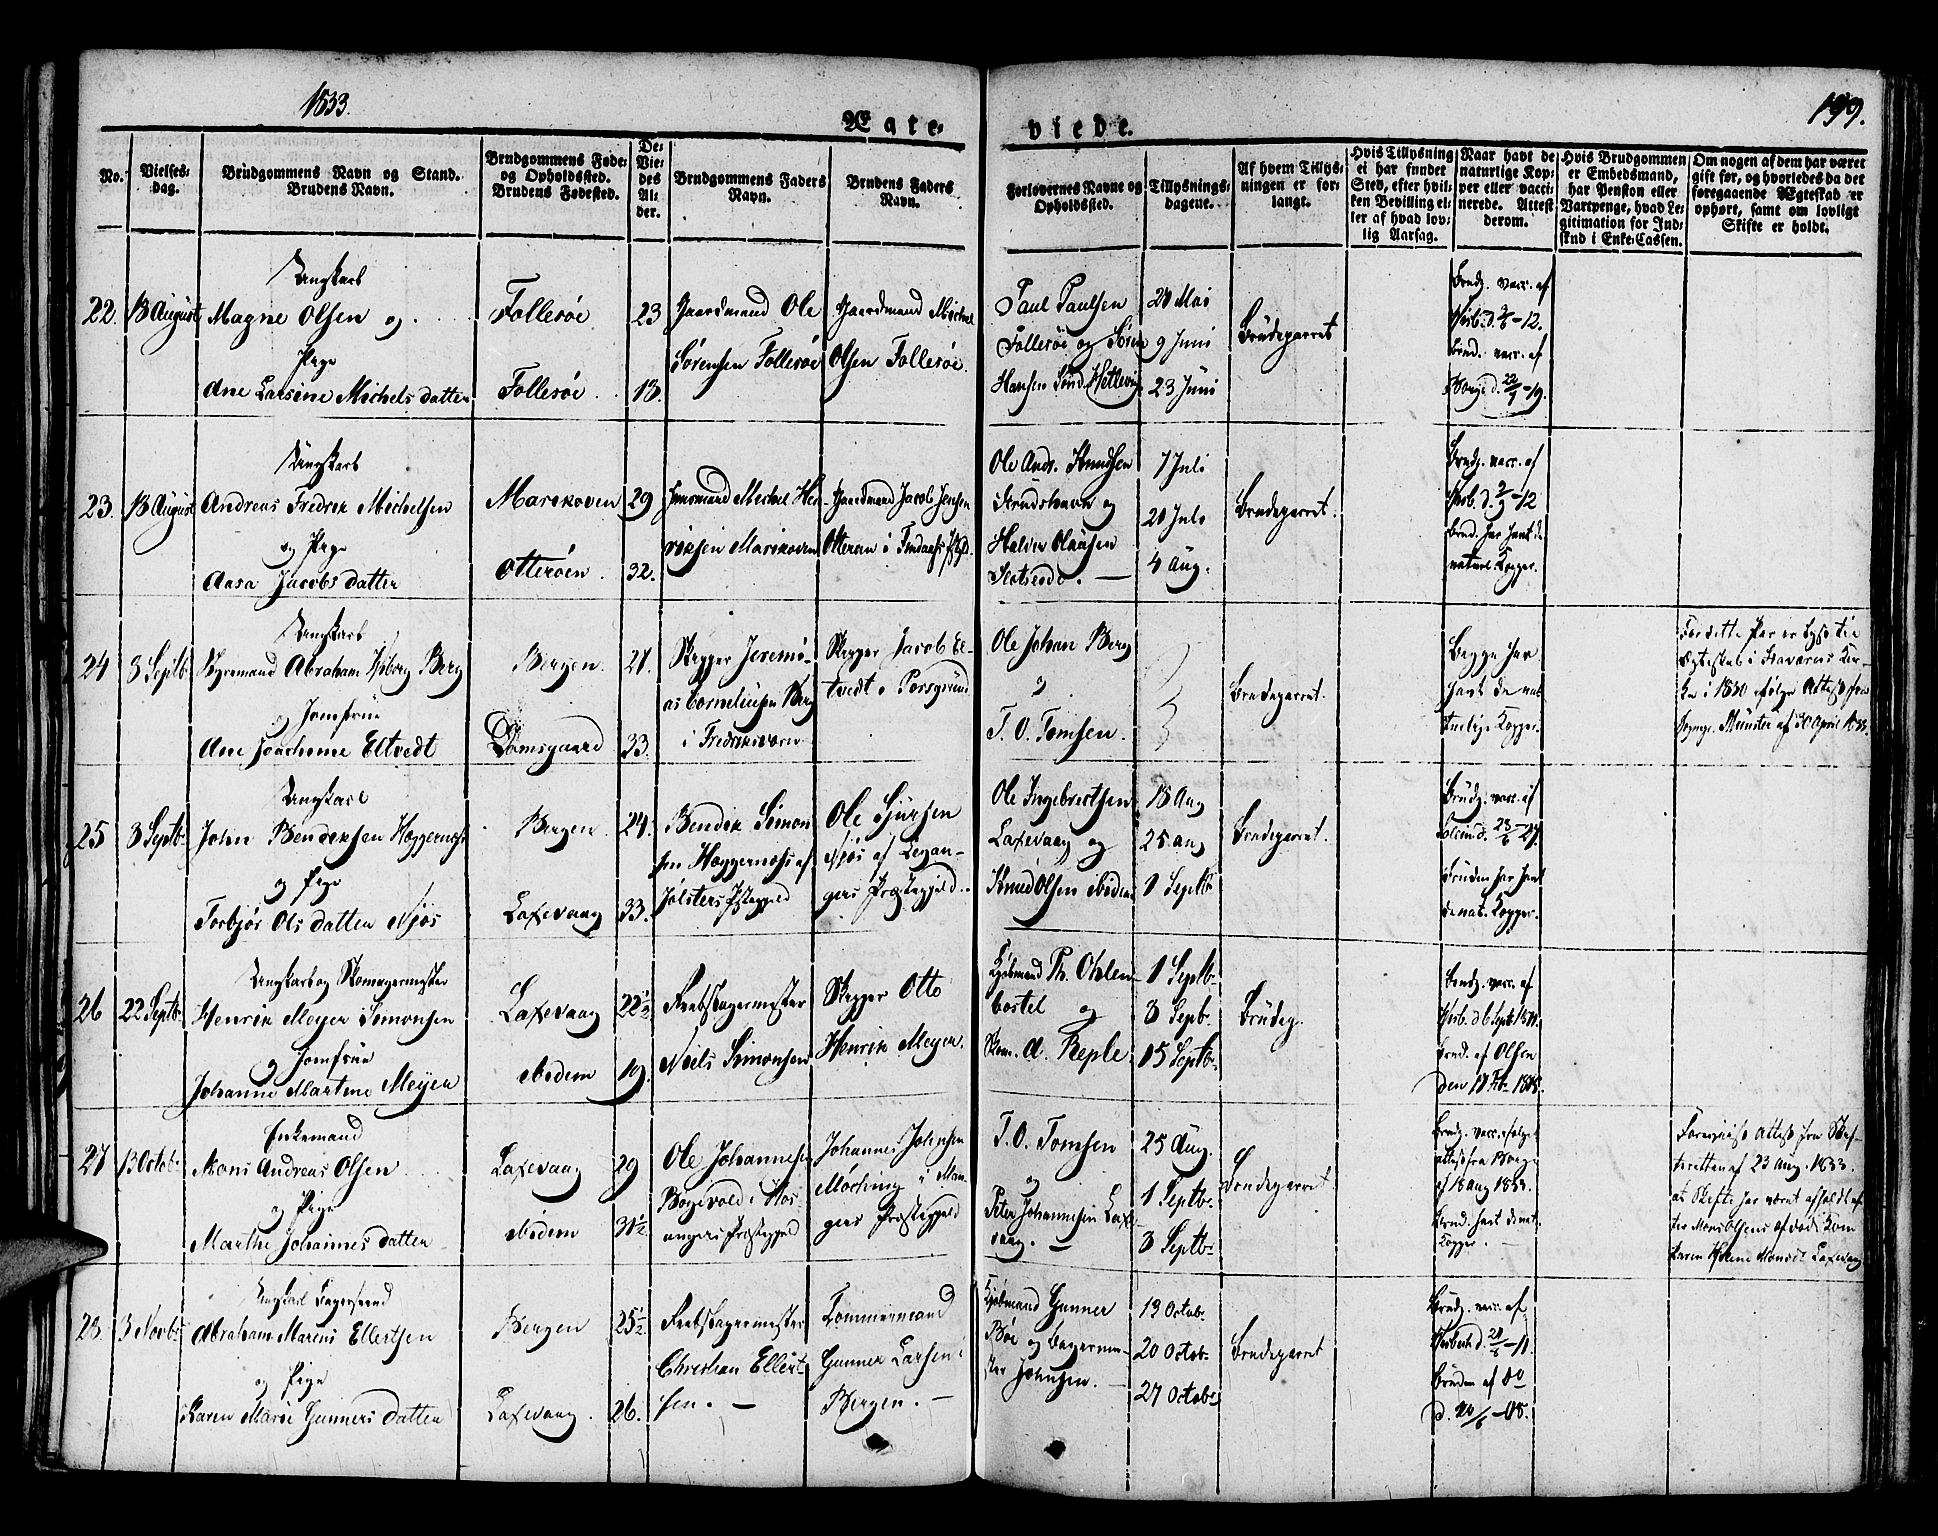 1833.
199.
Egte-
viede.
No.
Vielses-
dag.
Brudgommens Navn og Stand.
Brudens Navn.
Brudgommens Føde-
og Opholdssted.
Brudens Fødested.
De
Vie-
des
Al-
der.
Brudgommens Faders
Navn.
Brudens Faders
Navn.
Forlovernes Navne og
Opholdssted.
Tillysnings-
dagene.
Af hvem Tillys-
ningen er for-
langt.
Hvis Tillysning
ei har fundet
Sted, efter hvil-
ken Bevilling el-
ler af hvad lov-
lig Aarsag.
Naar havt de
naturlige Kop-
per eller vacci-
nerede. Attest
derom.
Hvis Brudgommen
er Embedsmand,
har Pension eller
Vartpenge, hvad Le-
gitimation for Ind-
skud i Enke-Cassen.
Om nogen af dem har været
gift før, og hvorledes da det
foregaaende Ægteskab er
ophørt, samt om lovligt
Skifte er holdt.
22.
13 August
Ungkarl
Magne Olsen og
Pige
Ane Larsine Michels datter
Follesøe
Follesøe
23
18.
Gaardmand Ole
Sørensen Follesøe
Gaardmand Michel
Olsen Follesøe.
Paul Paulsen
Follesøe og Søren
Hansen
20 Mai
9 Juni
23 Juni
Brudegarret
Brudg. vacc. af
2/6 - 12.
Brud. vacc. af
22/7 - 19.
23.
13 August
Ungkarl
Andreas Fredrik Michelsen
og Pige
Aasa Jacobs datter
Marikoven
Otterøen.
29
32.
Huusmand Michel Hen-
riksen Marikoven
Gaardmand Jacob Jensen
Otterøen i Findaas
Ole Andr. Knudsen
Strudshavn og
Halvor Olausen
7 Juli
20 Juli
4 Aug.
Brudeparret.
Brudg. vacc. af
- 12
Brud. har havt de
naturl. Kopper.
24
3 Septb.
Ungkarl
Styrmand Abraham Berg
og Jomfrue
Ane Joachime Eltvedt
Bergen.
Damsgaard
27.
33.
Skipper Jeremi-
as Corneliusen Berg
i Fredriksværn
Skipper Jacob El-
tvedt i Porsgrund
Ole Johan Berg
og
T. O. Tomsen.
Brudeparret.
Begge har
havt de nat-
turlige Kopper.
For dette Par er lyst til
Ægteskab i Staværns Kir-
ke i 1830 ifølge Attest fra
Sognepr. Münster af 30 April 1833.
25
3 Septb.
Ungkarl
John Bendiksen Heggernæss
og Pige
Torbjør Ols datter Njøs
Bergen
Laxevaag
24.
33.
Bendik Simon-
sen Heggernæss af
Jølsters Pstegjeld
Ole Sjursen
Njøs af Legan-
gers Præstegjeld.
Ole Ingebrectsen
Laxevaag og
Knud Olsen ibidem
18 Aug
25 aug
1 Septb.
Brudeparret.
Brudg. vacc. af
23/6 - 27.
Bruden har havt
de nat. Kopper.
26
22 Septb.
Ungkarl og Skomagermester
Henrik Meyer Simonsen
og Jomfrue
Johanne Martine Meyer
Laxevaag
ibidem
22½
19.
Reebslagermester
Niels Simonsen
Skipper Otto
Henrik Meyer.
Kjøbmand Th. Ohlen-
bostel og
Skom. A. Reple
1 Septb.
8 Septb.
15 Septb.
Brudeg.
Brudg. vacc. af
Brud. af Olsen
den 17 Feb. 1818.
27
13 Octob.
Enkemand
Mons Andreas Olsen
og Pige
Marthe Johannes datter
Laxevaag
ibidem
29
31½
Ole Johannesen
Bogevold i Hos-
angers Præstegjeld
Johannes Johnsen
i Man-
gers Præstegjeld
T. O. Tomsen
og
Peter Johannesen Laxe-
vaag.
25 Aug.
1 Septb.
8 Septb.
Brudeparret
Brudg. vacc. ifølge
attest fra
af 18 aug 1833.
Brud. havt de nat.
Kopper.
Foreviist Attest fra Skif-
teretten af 23 Aug. 1833.
at Skifte har været afholdt ef-
ter Mons Olsens afdøde Kone
Karen Helene Monsdr Laxevaag
28.
3 Novb.
Ungkarl Bagersvend
Abraham Marcus Ellertsen
og Pige
Karen Marie Gunners datter
Bergen
Laxevaag.
25½
26.
Reebslagermester
Christian Ellert-
sen.
Tømmermand
Gunner Larsen i
Bergen.
Kjøbmand Gunner
Bøe og Bagerme-
ster Johnsen.
13 Octob.
20 Octob.
27 Octob.
Brudeparret
Brudg. vacc. af
- 11.
Bruden af do
d. - 08.